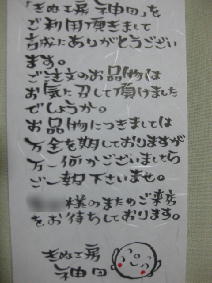 「きぬ工房 神田」を
ご利用頂きまして
誠にありがとうござい
ます。
ご注文のお品物は
お気に召して頂けました
でしょうか。
お品物につきましては
万全を期しておりますが
万一何かございましたら
ご一報下さいませ。
様のまたのご来店
をお待ちしております。
きぬ工房
神田